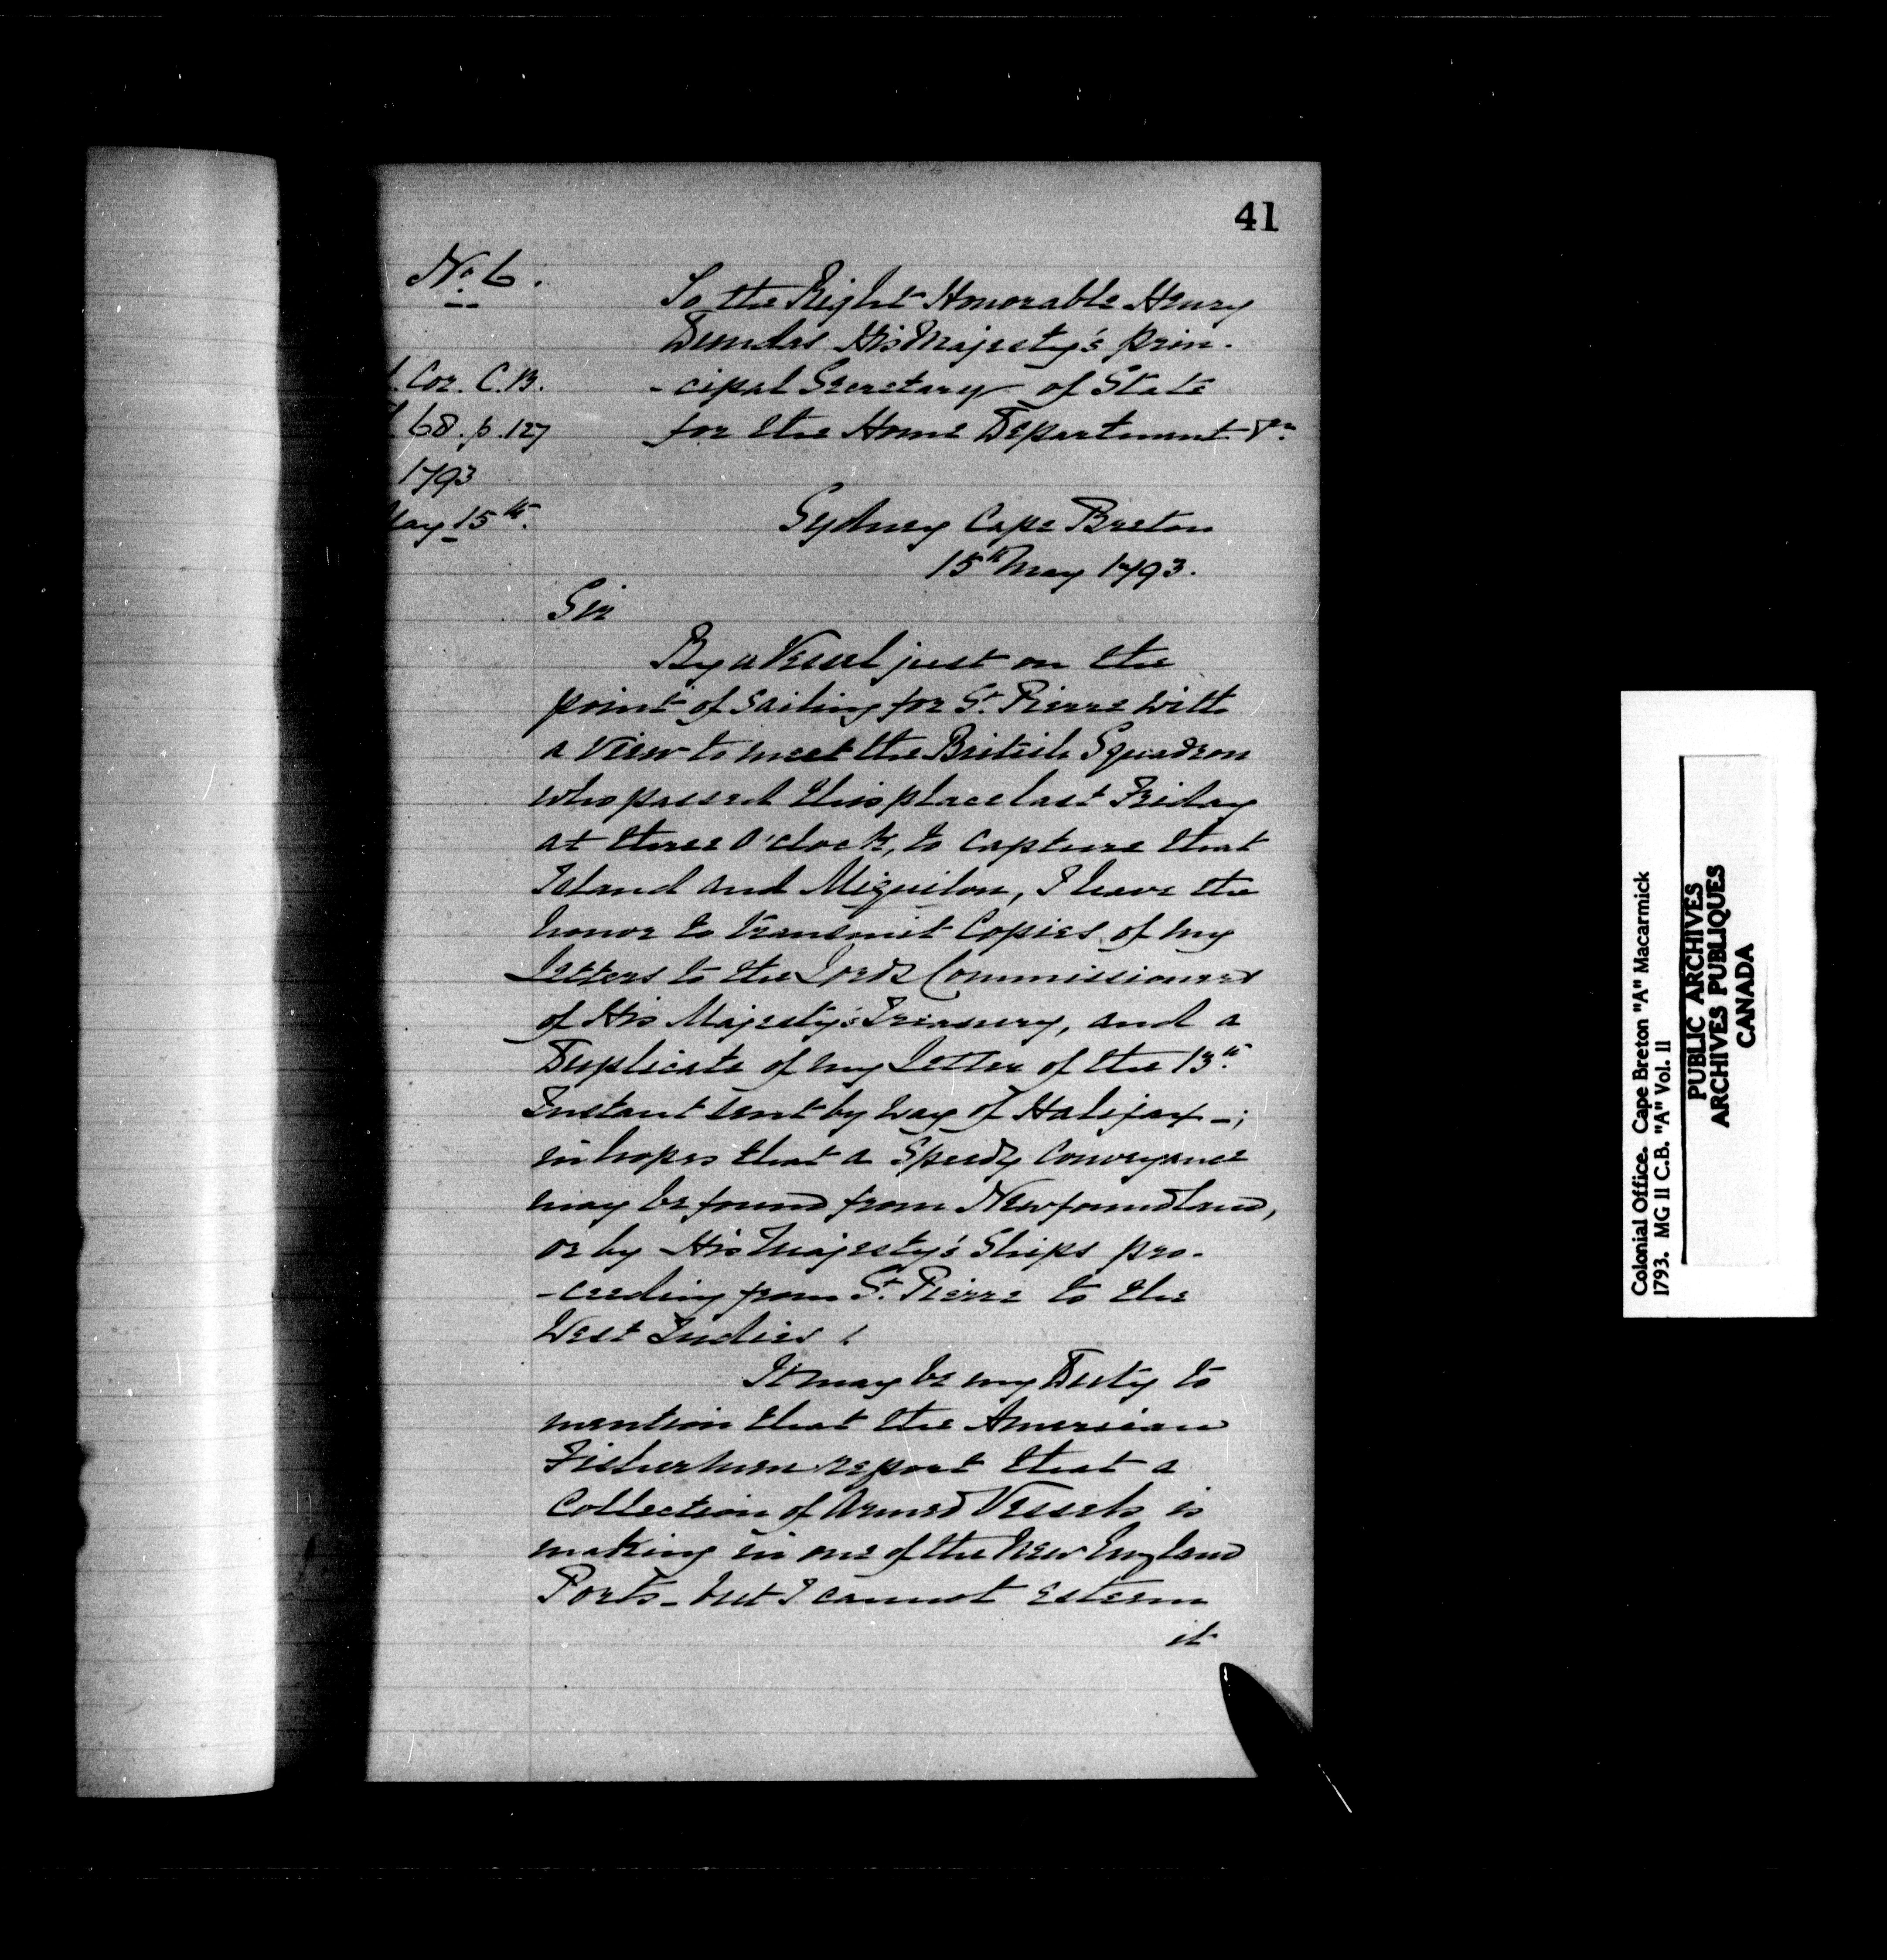 41
No. 6.
To the Right Honorable Henry
Dundas His Majesty's prin-
-cipal Secretary of State
for the Home Department &ca
. Cor. C.B.
68. p. 127
1793
May 15th.
Sydney Cape Breton
15th May 1793.
Sir
By a Vessel just on the
point of sailing for St. Pierre with
a view to meet the British Squadron
who passed this place last Friday
at three O'clock, to capture that
Island and Miquilon, I have the
honor to transmit Copies of my
Letters to the Lords Commissioners
of His Majesty's Treasury, and a
Duplicate of my Letter of the 13th.
Instant sent by way of Halifax -;
in hopes that a Speedy Conveyance
may be found from Newfoundland,
or by His Majesty's Ships pro-
-ceeding from St. Pierre to the
West Indies.
It may be my Duty to
mention that the American
Fishermen report that a
Collection of Armed Vessels is
making in one of the New England
Ports - but I cannot esteem
it
Colonial Office. Cape Breton "A" Macarmick
1793. MG II C.B. "A" Vol. II
PUBLIC ARCHIVES
ARCHIVES PUBLIQUES
CANADA